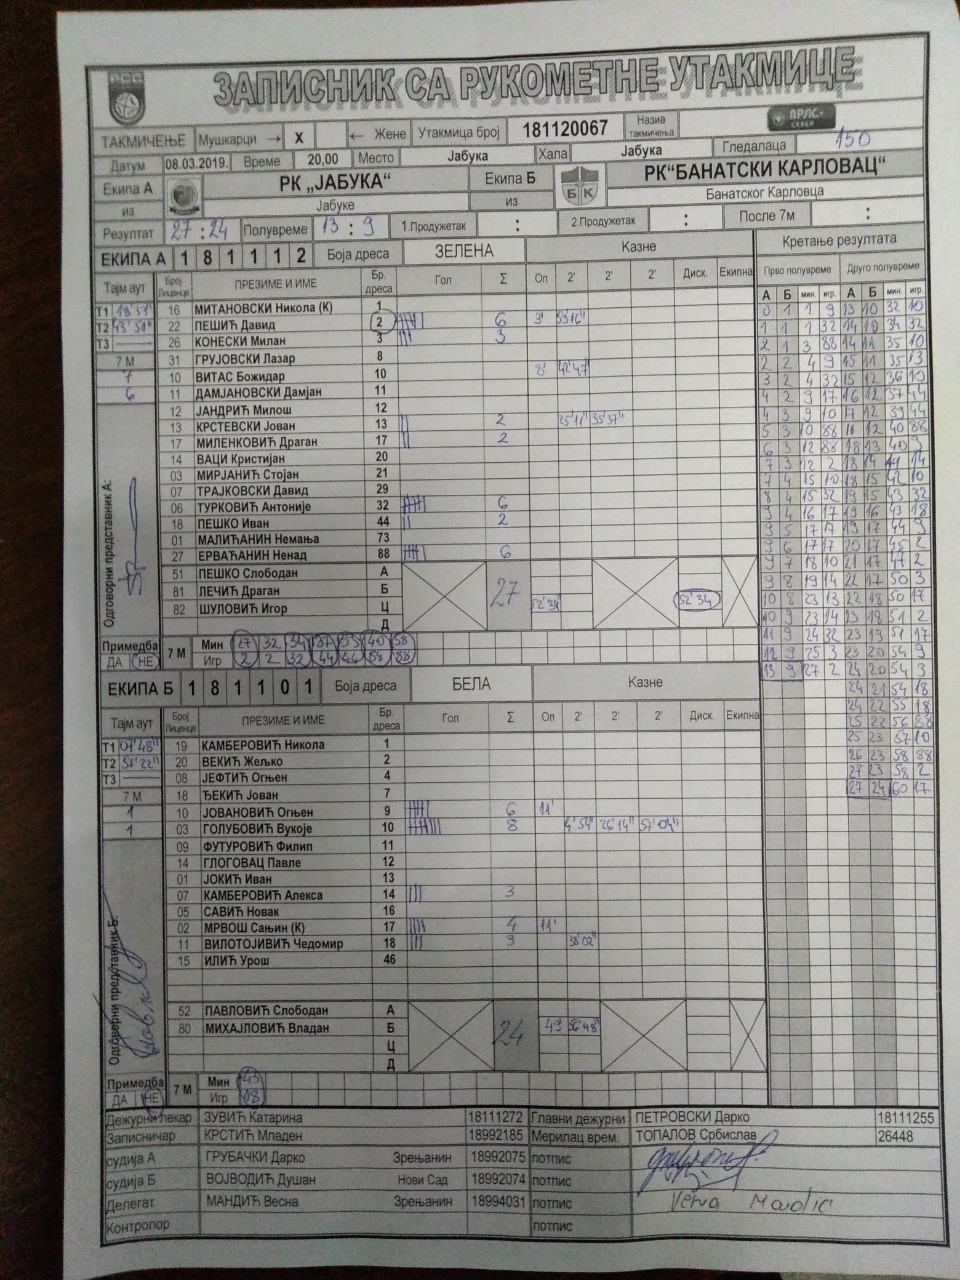 РСС
ЗАПИСНИК СА РУКОМЕТНЕ УТАКМИЦЕ
ТАКМИЧЕЊЕ Мушкарци → X ← Жене Утакмица број 181120067 Назив такмичења ПРЛС-СЕВЕР
Датум 08.03.2019. Време 20,00 Место Јабука Хала Јабука Гледалаца 150
Екипа А РК „ЈАБУКА“ Екипа Б БК РК“БАНАТСКИ КАРЛОВАЦ“
из Јабуке из Банатског Карловца
Резултат 27 : 24 Полувреме 13 : 9 1.Продужетак : 2.Продужетак : После 7м :
ЕКИПА А 1 8 1 1 1 2 Боја дреса ЗЕЛЕНА Казне Кретање резултата
Тајм аут Број Лиценце ПРЕЗИМЕ И ИМЕ Бр. дреса Гол Σ Оп 2' 2' 2' Диск. Екипна Прво полувреме Друго полувреме
А Б мин. игр. А Б мин. игр.
Т1 18'33" 16 МИТАНОВСКИ Никола (К) 1
Т2 43'51" 22 ПЕШИЋ Давид 2 6 3' 53'16"
Т3 26 КОНЕСКИ Милан 3 3
7 М 31 ГРУЈОВСКИ Лазар 8
7 10 ВИТАС Божидар 10 8' 42'47"
6 11 ДАМЈАНОВСКИ Дамјан 11
12 ЈАНДРИЋ Милош 12
13 КРСТЕВСКИ Јован 13 2 25'11" 35'37"
17 МИЛЕНКОВИЋ Драган 17 2
14 ВАЦИ Кристијан 20
03 МИРЈАНИЋ Стојан 21
07 ТРАЈКОВСКИ Давид 29
06 ТУРКОВИЋ Антоније 32 6
18 ПЕШКО Иван 44 2
01 МАЛИЋАНИН Немања 73
27 ЕРВАЋАНИН Ненад 88 6
51 ПЕШКО Слободан А
81 ЛЕЧИЋ Драган Б 27 52'34"
82 ШУЛОВИЋ Игор Ц 52'34"
Д
Одговорни представник А:
Примедба ДА НЕ
7 М Мин 27 32 34 37 39 40 58
Игр 2 2 32 44 44 88 88
0 1 1 9 13 10 32 10
1 1 1 32 14 10 34 32
2 1 3 88 14 11 35 10
2 2 4 9 15 11 35 13
3 2 4 32 15 12 36 10
4 2 9 17 16 12 37 44
4 3 9 10 17 12 39 44
5 3 10 88 18 12 40 88
6 3 12 88 18 13 40 9
7 3 12 2 18 14 14
7 4 15 10 18 15 42 10
8 4 15 32 19 15 43 32
9 4 16 17 19 16 43 18
9 5 17 17 19 17 44 9
9 6 17 17 20 17 45 2
9 7 18 10 21 17 47 2
9 8 19 14 22 17 50 3
10 8 23 13 22 18 50 17
10 9 23 14 23 18 51 2
11 9 24 32 23 19 51 17
12 9 25 3 23 20 54 9
13 9 27 2 24 20 54 3
24 21 54 18
24 22 55 18
25 22 56 88
25 23 57 10
26 23 58 88
27 23 58 2
27 24 60 17
ЕКИПА Б 1 8 1 1 0 1 Боја дреса БЕЛА Казне
Тајм аут Број Лиценце ПРЕЗИМЕ И ИМЕ Бр. дреса Гол Σ Оп 2' 2' 2' Диск. Екипна
Т1 01'48" 19 КАМБЕРОВИЋ Никола 1
Т2 51'22" 20 ВЕКИЋ Жељко 2
Т3 08 ЈЕФТИЋ Огњен 4
7 М 18 ЂЕКИЋ Јован 7
1 10 ЈОВАНОВИЋ Огњен 9 6 11'
1 03 ГОЛУБОВИЋ Вукоје 10 8 4'54" 26'14" 57'04"
09 ФУТУРОВИЋ Филип 11
14 ГЛОГОВАЦ Павле 12
01 ЈОКИЋ Иван 13
07 КАМБЕРОВИЋ Алекса 14 3
05 САВИЋ Новак 16
02 МРВОШ Сањин (К) 17 4 11'
11 ВИЛОТОЈИВИЋ Чедомир 18 3 38'02"
15 ИЛИЋ Урош 46
52 ПАВЛОВИЋ Слободан А
80 МИХАЈЛОВИЋ Владан Б 24 49' 56'48"
Ц
Д
Одговорни представник Б:
Примедба ДА НЕ
7 М Мин 43
Игр 18
Дежурни лекар ЗУВИЋ Катарина 18111272 Главни дежурни ПЕТРОВСКИ Дарко 18111255
Записничар КРСТИЋ Младен 18992185 Мерилац врем. ТОПАЛОВ Србислав 26448
судија А ГРУБАЧКИ Дарко Зрењанин 18992075 потпис
судија Б ВОЈВОДИЋ Душан Нови Сад 18992074 потпис
Делегат МАНДИЋ Весна Зрењанин 18994031 потпис Vesna Mandić
Контролор потпис